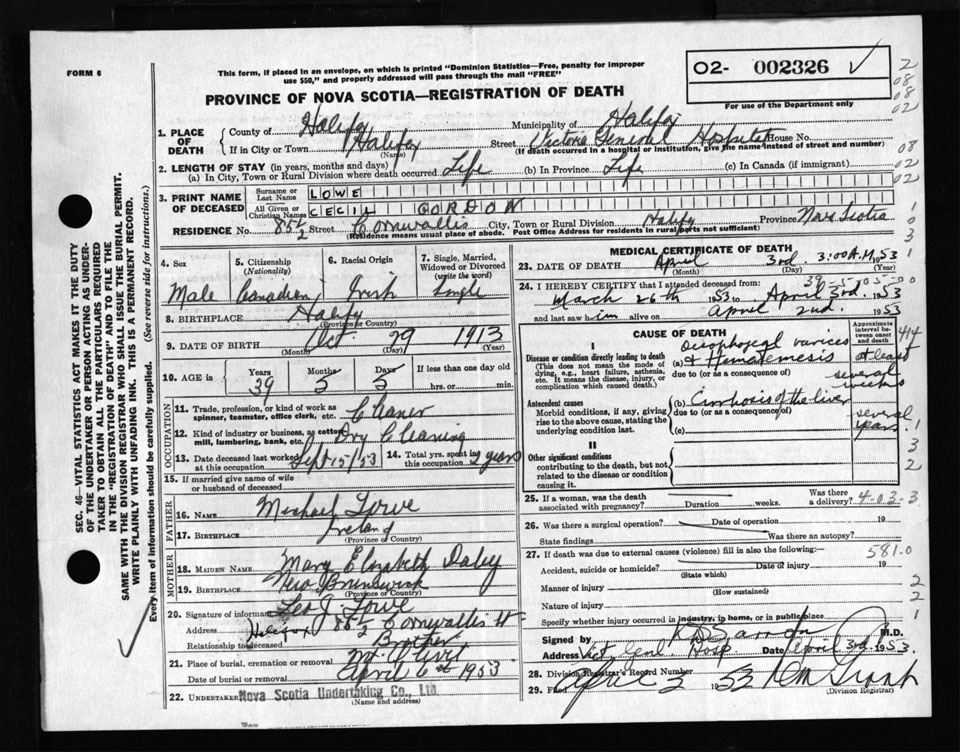 FORM 6
This form, if placed in an envelope, on which is printed "Dominion Statistics—Free, penalty for improper
use $50," and properly addressed will pass through the mail "FREE"
O2- 002326
For use of the Department only
PROVINCE OF NOVA SCOTIA—REGISTRATION OF DEATH
1. PLACE OF DEATH
County of Halifax Municipality of Halifax
If in City or Town Halifax (Name) Street Victoria General Hospital House No.
(If death occurred in a hospital or institution, give the name instead of street and number)
2. LENGTH OF STAY (in years, months and days)
(a) In City, Town or Rural Division where death occurred Life (b) In Province Life (c) In Canada (if immigrant)
3. PRINT NAME OF DECEASED
Surname or Last Name LOWE
All Given or Christian Names CECIL GORDON
RESIDENCE No. 85 1/2 Street Cornwallis City, Town or Rural Division Halifax Province Nova Scotia
(Residence means usual place of abode. Post Office Address for residents in rural parts not sufficient)
4. Sex Male
5. Citizenship (Nationality) Canadian
6. Racial Origin Irish
7. Single, Married, Widowed or Divorced (write the word) Single
8. BIRTHPLACE Halifax (Province or Country)
9. DATE OF BIRTH Oct. 29 1913
(Month) (Day) (Year)
10. AGE in Years Months Days If less than one day old
39 5 5 hrs. or min.
OCCUPATION
11. Trade, profession, or kind of work as spinner, teamster, office clerk, etc. Cleaner
12. Kind of industry or business, as cotton mill, lumbering, bank, etc. Dry Cleaning
13. Date deceased last worked at this occupation Sept 15/53
14. Total yrs. spent in this occupation 2 years
15. If married give name of wife or husband of deceased
FATHER
16. NAME Michael Lowe
17. BIRTHPLACE Ireland
(Province or Country)
MOTHER
18. MAIDEN NAME Mary Elizabeth Daley
19. BIRTHPLACE New Brunswick
(Province or Country)
20. Signature of informant Leo J. Lowe
Address Halifax 85 1/2 Cornwallis St
Relationship to deceased Brother
21. Place of burial, cremation or removal Mt. Olivet
April 6th 1953
22. UNDERTAKER Nova Scotia Undertaking Co., Ltd.
(Name and address)
MEDICAL CERTIFICATE OF DEATH
23. DATE OF DEATH April 3rd. 3:00 A.M. 1953
(Month) (Day) (Year)
24. I HEREBY CERTIFY that I attended deceased from:
March 26th 1953 to April 3rd. 1953
and last saw him alive on April 2nd. 1953
CAUSE OF DEATH
Approximate interval between onset and death
I
Disease or condition directly leading to death
(This does not mean the mode of dying, e.g., heart failure, asthenia, etc. It means the disease, injury, or complication which caused death.)
(a) Oesophageal varices & Hematemesis
at least several weeks
due to (or as a consequence of)
Antecedent causes
Morbid conditions, if any, giving rise to the above cause, stating the underlying condition last.
(b) Cirrhosis of the liver
several years.
due to (or as a consequence of)
(c)
II
Other significant conditions
contributing to the death, but not related to the disease or condition causing it.
25. If a woman, was the death associated with pregnancy? Duration weeks. Was there a delivery? 4-03-3
26. Was there a surgical operation? Date of operation 19
State findings Was there an autopsy?
27. If death was due to external causes (violence) fill in also the following:— 581.0
Accident, suicide or homicide? (State which) Date of injury 19
Manner of injury
(How sustained)
Nature of injury
Specify whether injury occurred in industry, in home, or in public place
Signed by M.D.
Address Vict. Genl. Hosp Date April 3rd. 1953.
28. Division Registrar's Record Number
29. Filed April 3 1953
Division Registrar
SEC. 46—VITAL STATISTICS ACT MAKES IT THE DUTY
OF THE UNDERTAKER OR PERSON ACTING AS UNDER-
TAKER TO OBTAIN ALL THE PARTICULARS REQUIRED
IN THE "REGISTRATION OF DEATH" AND TO FILE THE
SAME WITH THE DIVISION REGISTRAR WHO SHALL ISSUE THE BURIAL PERMIT.
WRITE PLAINLY WITH UNFADING INK. THIS IS A PERMANENT RECORD.
Every item of information should be carefully supplied. (See reverse side for instructions.)